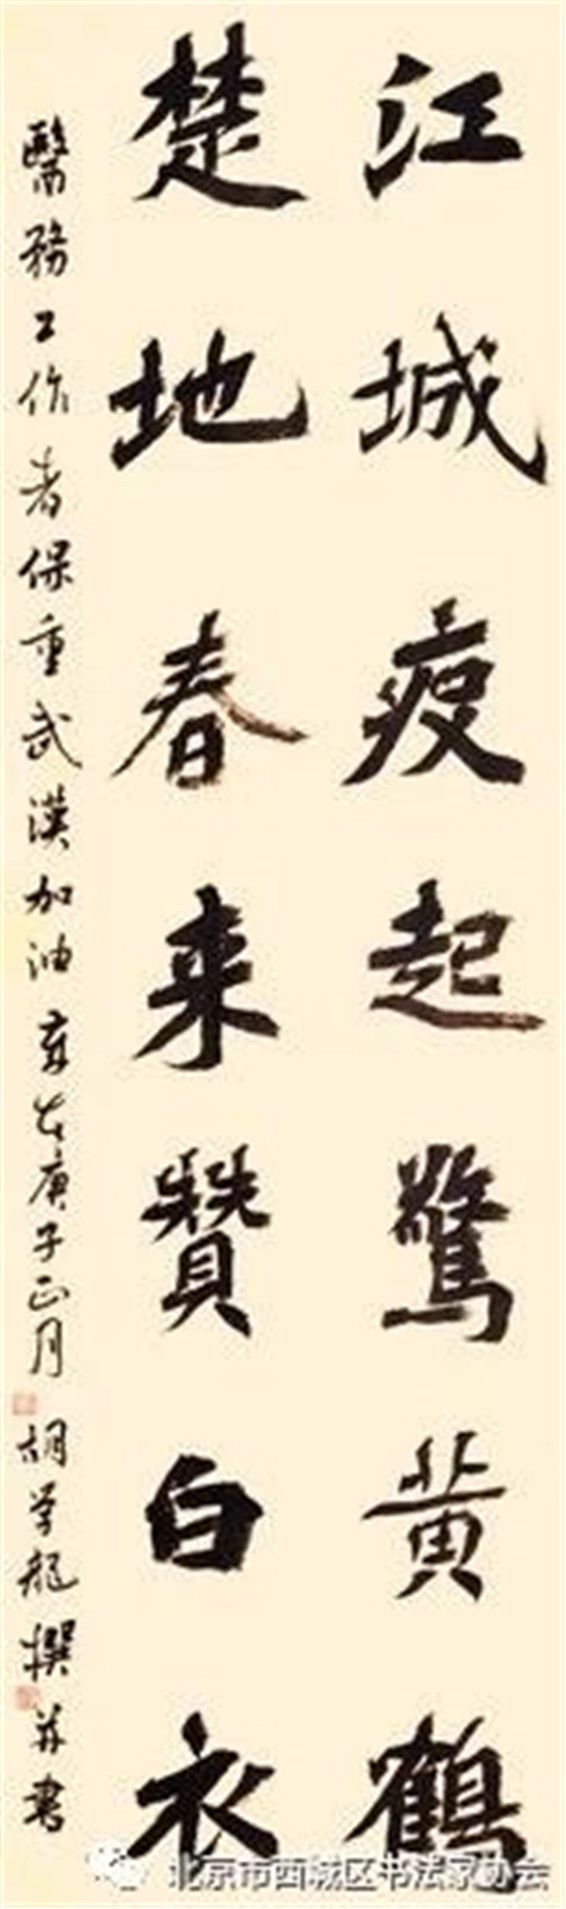 江城疫起驚黄鶴
楚地春来贊白衣
醫務工作者保重武漢加油 庚子正月 胡学龍撰并書
北京市西城区书法家协会